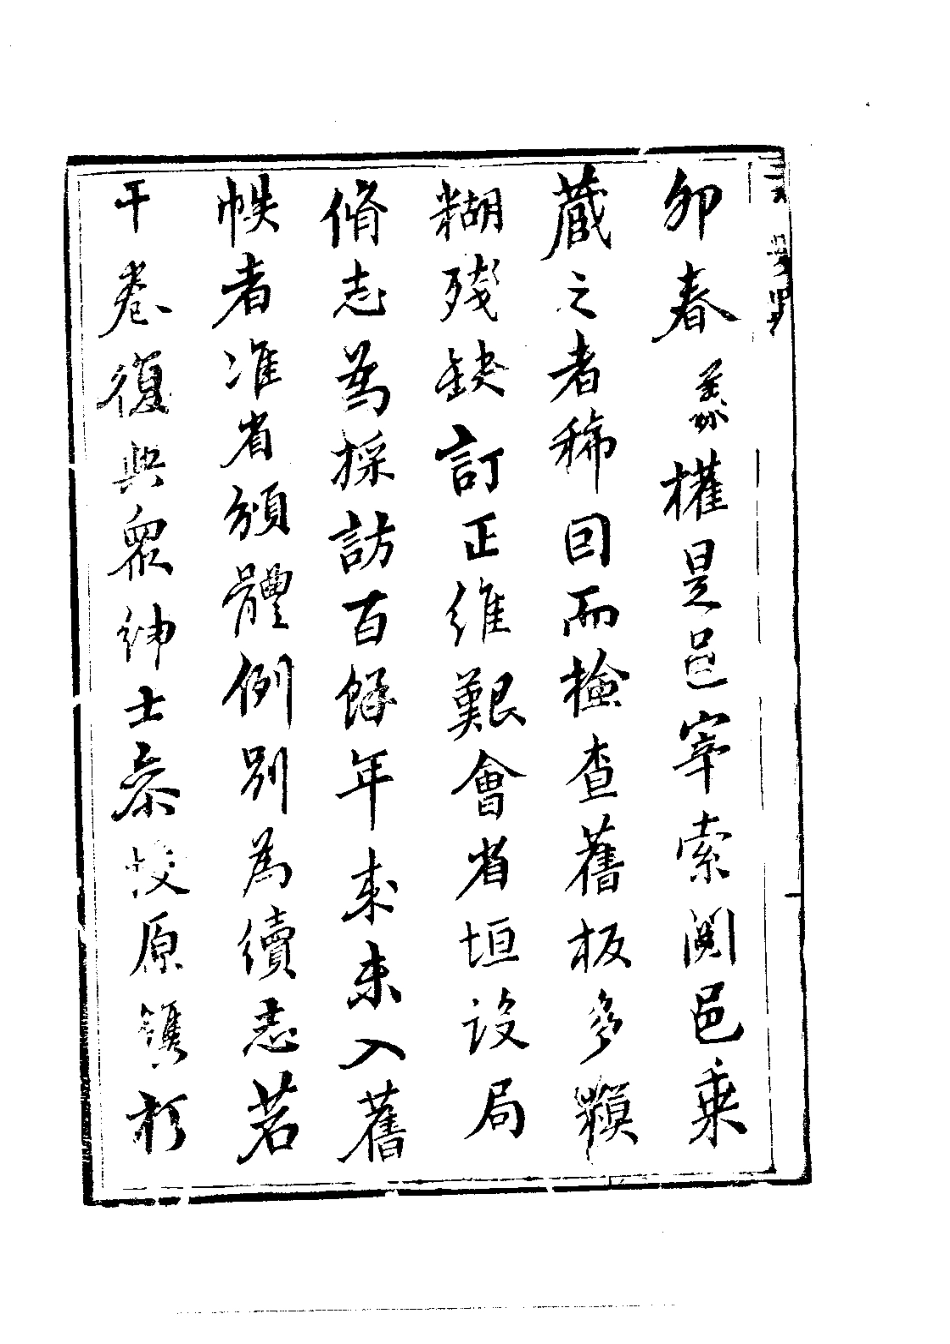 卯春權是邑宰索閱邑乘
藏之者稀回而檢查舊板多糢
糊殘缺訂正維艱會省垣設局
脩志為採訪百餘年來未入舊
帙者准省頒體例別為續志若
干卷復與眾紳士叅校原舊於